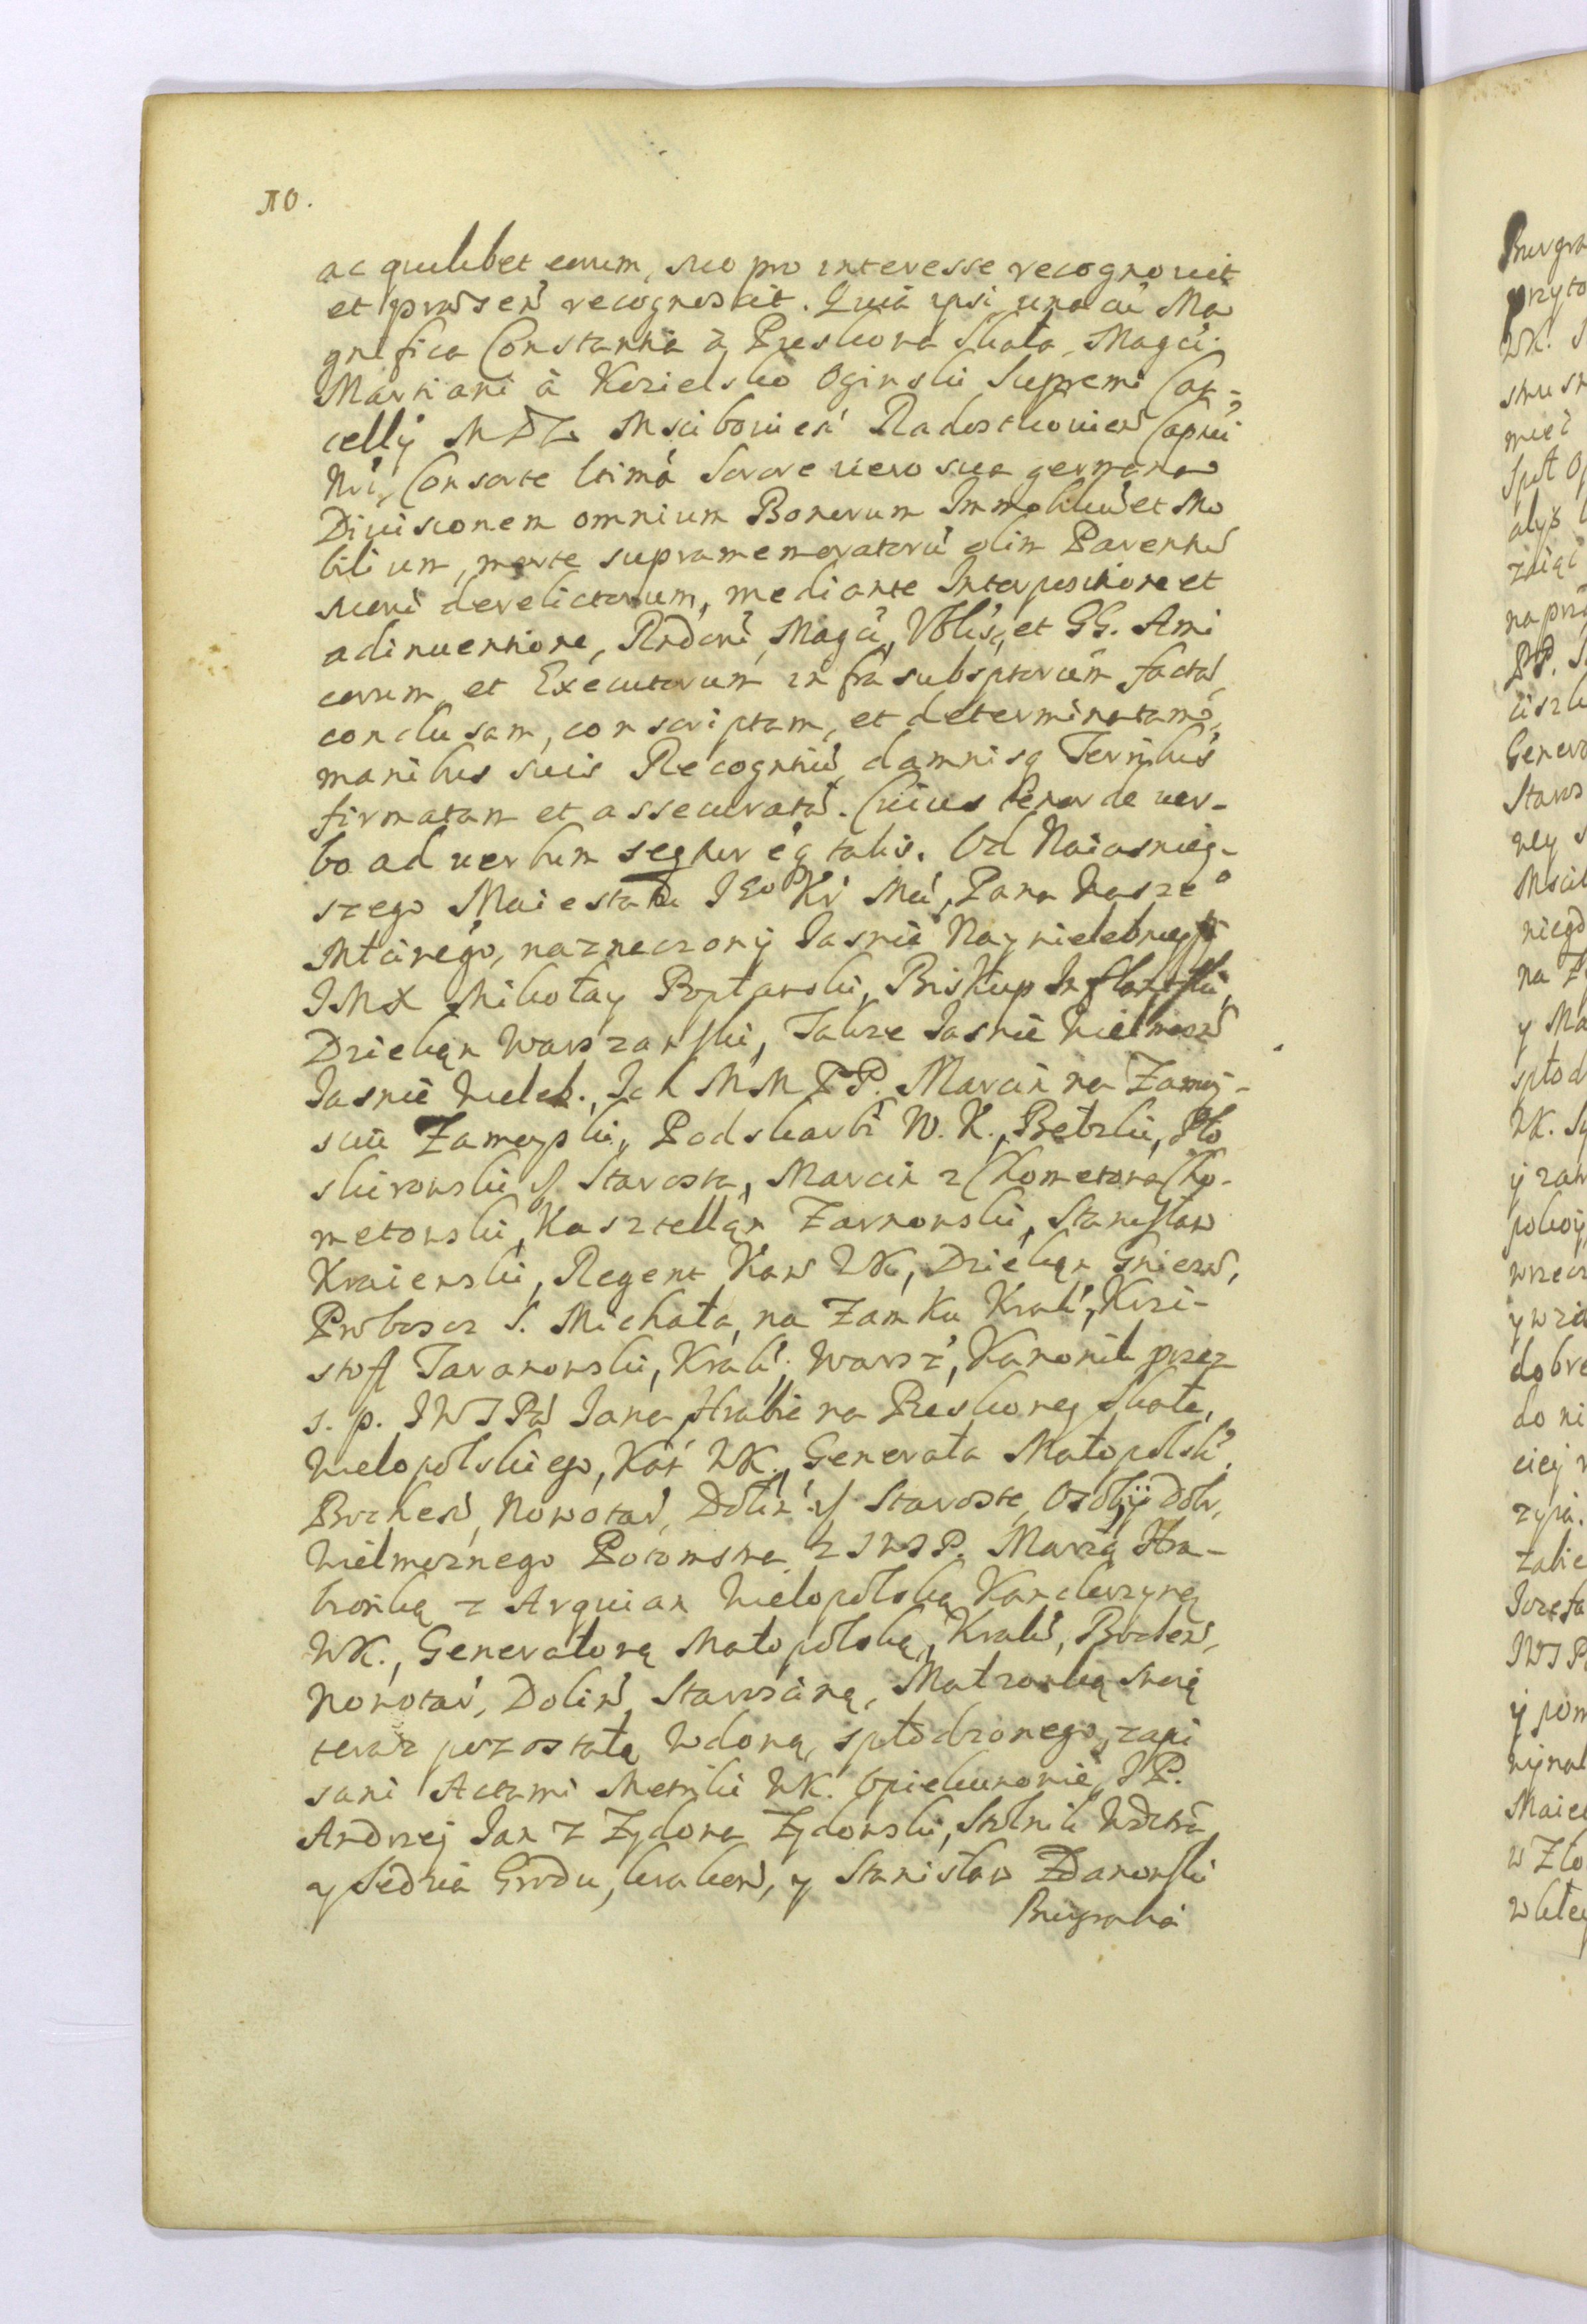 10.
ac quilibet eorum, suo pro interesse recognovit
et praesen̄ recognoscit. Quia ipsi una cū Ma
gnifica Constantia à Pieskowa Skała, Magci
Martiani à Kozielsko Oginski Supremi Can-
cellÿ MDL Mscibouien̄ Radoszkouien̄ Capnei
Nri, Consorte ltima Sorore uero sua germana
Diuisionem omnium Bonorum Immobiliū et Mo
bilium, morte supramemoratorū olim Parentū
suorū derelictorum, mediante Interpositione et
adinuentione, Rndorū, Magcū, Vblis, et GG. Ami
corum et Executorum infra subsptorum factā
conclusam, conscriptam, et determinatamq,
manibus suis Recognitiū, damnisq Terribus
firmatam et assecuratā. Cuius tenor de uer-
bo ad uerbum seqtur éq talis. Od Naiasnieÿ-
szego Maiestatu IEo Kr Mci, Pana Nasze°
Mtciwego, naznaczonÿ Iasnie Naywielebnieyszÿ
IMX Mikołay Popławski, Biskup Inflantski,
Dziekan Warszawski, Takze Iasnie Wielmozn̄
Iasnie Wieleb. Ich MM PP. Marcin na Zamoy-
sciu Zamoyski, Podskarbi W. K., Bełzki, Pło
skirowski // Starosta, Marcin z Chometowa Cho-
metowski, Kasztellan Zarnowski, Stanisław
Kraiewski, Regent Kan̄ WK, Dziekan Gniezn̄,
Proboscz S. Michała, na Zamku Krak̄, Krzi-
stoff Taranowski, Krak̄, Warsz̄, Kanonik przez
s. p. IWIPā Iana Hrabie na Pieskoweÿ Skale,
Wielopolskiego, Kan̄ WK, Generała Małopolsk̄
Bochen̄, Nowotar̄, Dolin̄ // Staroste, Osobÿ y Dobr,
Wielmoznego Potomstwa z IWIP. Marią Hra-
bionką z Arquian Wielopolską Kanclerzyną
WK., Generałową Małopolską, Krak̄, Bochen̄,
Nowotar̄, Dolin̄ Starosciną, Małzonką swoią
teraz pozostałą Wdową, spłodzonego, zapi
sani Actami Metriki WK. Opiekunowie, IP.
Andrzeÿ Ian z Zydowa Zydowski, Stolnik Wdztwa
y Sędzia Grodu, krakow̄, y Stanisław Zdanowski
Burgrabia